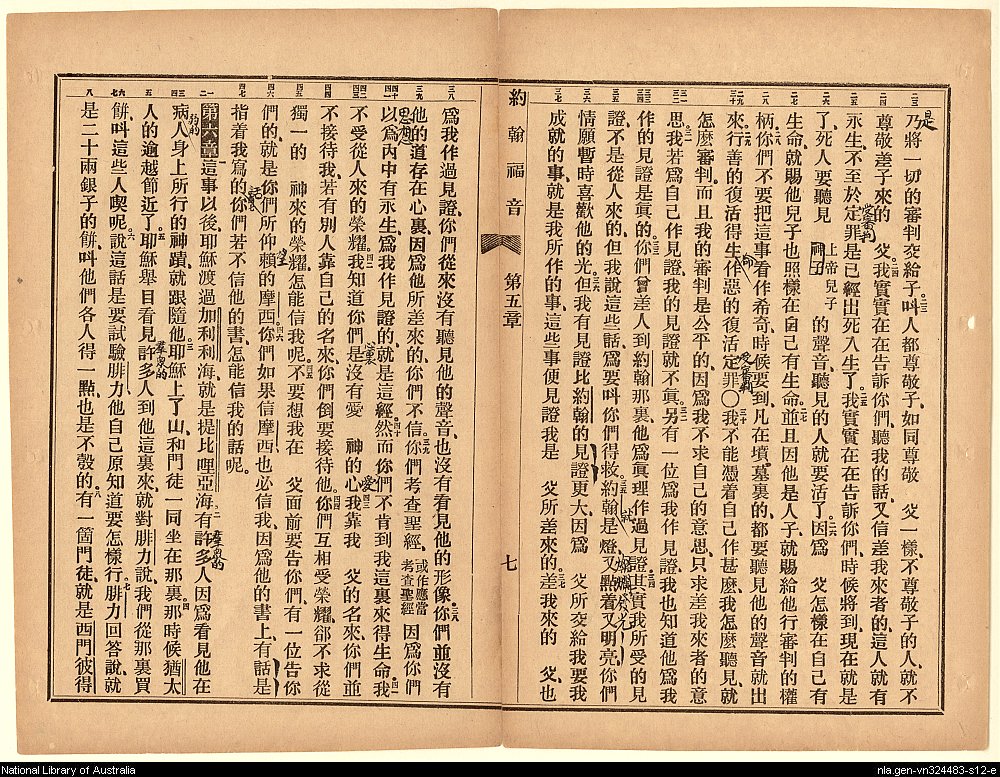 二二 二三 二四 二五 二六 二七 二八 二九 三十 三一 三二 三三 三四 三五 三六 三七
是
乃將一切的審判交給子、叫人都尊敬子、如同尊敬 父一樣、不尊敬子的人、就不
尊敬差子來的 父、我實實在在告訴你們、聽我的話、又信差我來者的、這人就有
永生、不至於定罪、是已經出死入生了、我實實在在告訴你們、時候將到、現在就是
了、死人要聽見 上帝兒子 神子 的聲音、聽見的人就要活了、因爲 父怎樣在自己有
生命、就賜他兒子也照樣在自己有生命、並且因他是人子、就賜給他行審判的權
柄、你們不要把這事看作希奇、時候要到、凡在墳墓裏的、都要聽見他的聲音就出
來、行善的復活得生、作惡的復活定罪、〇我不能憑着自己作甚麽、我怎麽聽見、就
怎麽審判、而且我的審判是公平的、因爲我不求自己的意思、只求差我來者的意
思、我若爲自己作見證、我的見證就不眞、另有一位爲我作見證、我也知道他爲我
作的見證是眞的、你們曾差人到約翰那裏、他爲眞理作過見證、其實我所受的見
證、不是從人來的、但我說這些話、爲要叫你們得救、約翰是燈、又點着、又明亮、你們
情願暫時喜歡他的光、但我有見證比約翰的見證更大、因爲 父所交給我要我
成就的事、就是我所作的事、這些事便見證我是 父所差來的、差我來的 父、也
約翰福音
第五章
七
三八 三九 四十 四一 四二 四三 四四 四五 四六 四七 一 二 三 四 五 六 七 八
爲我作過見證、你們從來沒有聽見他的聲音、也沒有看見他的形像、你們並沒有
他的道存在心裏、因爲他所差來的、你們不信、你們考查聖經、或作應當考查聖經 因爲你們
思想
以爲內中有永生、爲我作見證的、就是這經、然而你們不肯到我這裏來得生命、我
不受從人來的榮耀、我知道你們是沒有愛 神的心、我靠我 父的名來、你們並
不接待我、若有別人靠自己的名來、你們倒要接待他、你們互相受榮耀、卻不求從
獨一的 神來的榮耀、怎能信我呢、不要想我在 父面前要告你們、有一位告你
們的、就是你們所仰賴的摩西、你們如果信摩西、也必信我、因爲他的書上、有話是
指着我寫的、你們若不信他的書、怎能信我的話呢。
第六章這事以後、耶穌渡過加利利海、就是提比哩亞海、有許多人、因爲看見他在
病人身上所行的神蹟、就跟隨他、耶穌上了山、和門徒一同坐在那裏、那時候猶太
人的逾越節近了、耶穌舉目看見許多人到他這裏來、就對腓力說、我們從那裏買
羣衆的
餅、叫這些人喫呢、說這話是要試驗腓力、他自己原知道要怎樣行、腓力回答說、就
是二十兩銀子的餅、叫他們各人得一點、也是不彀的、有一箇門徒、就是西門彼得
National Library of Australia
nla.gen-vn324483-s12-e